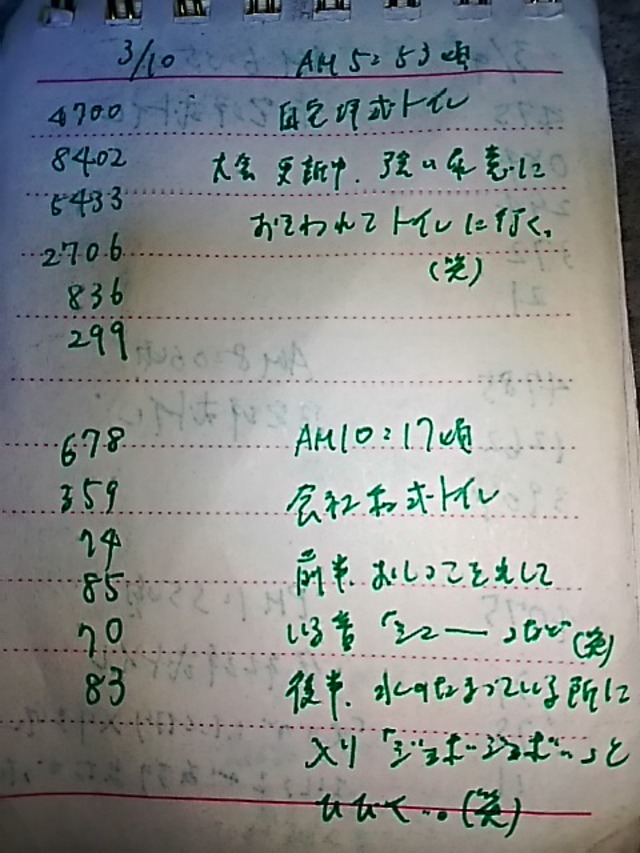 3/10 AM5:53頃
4700 自宅洋式トイレ
8402 大会更新中、強い尿意に
5433
おそわれてトイレに行く。
2706
(笑)
836
299
678 AM10:17頃
359 会社和式トイレ
74
前半、おしっこを出して
85
70 いる音「シューー」など(笑)
83 後半、水のたまっている所に
入り「ジョボージョボー」と
ひびく…。(笑)